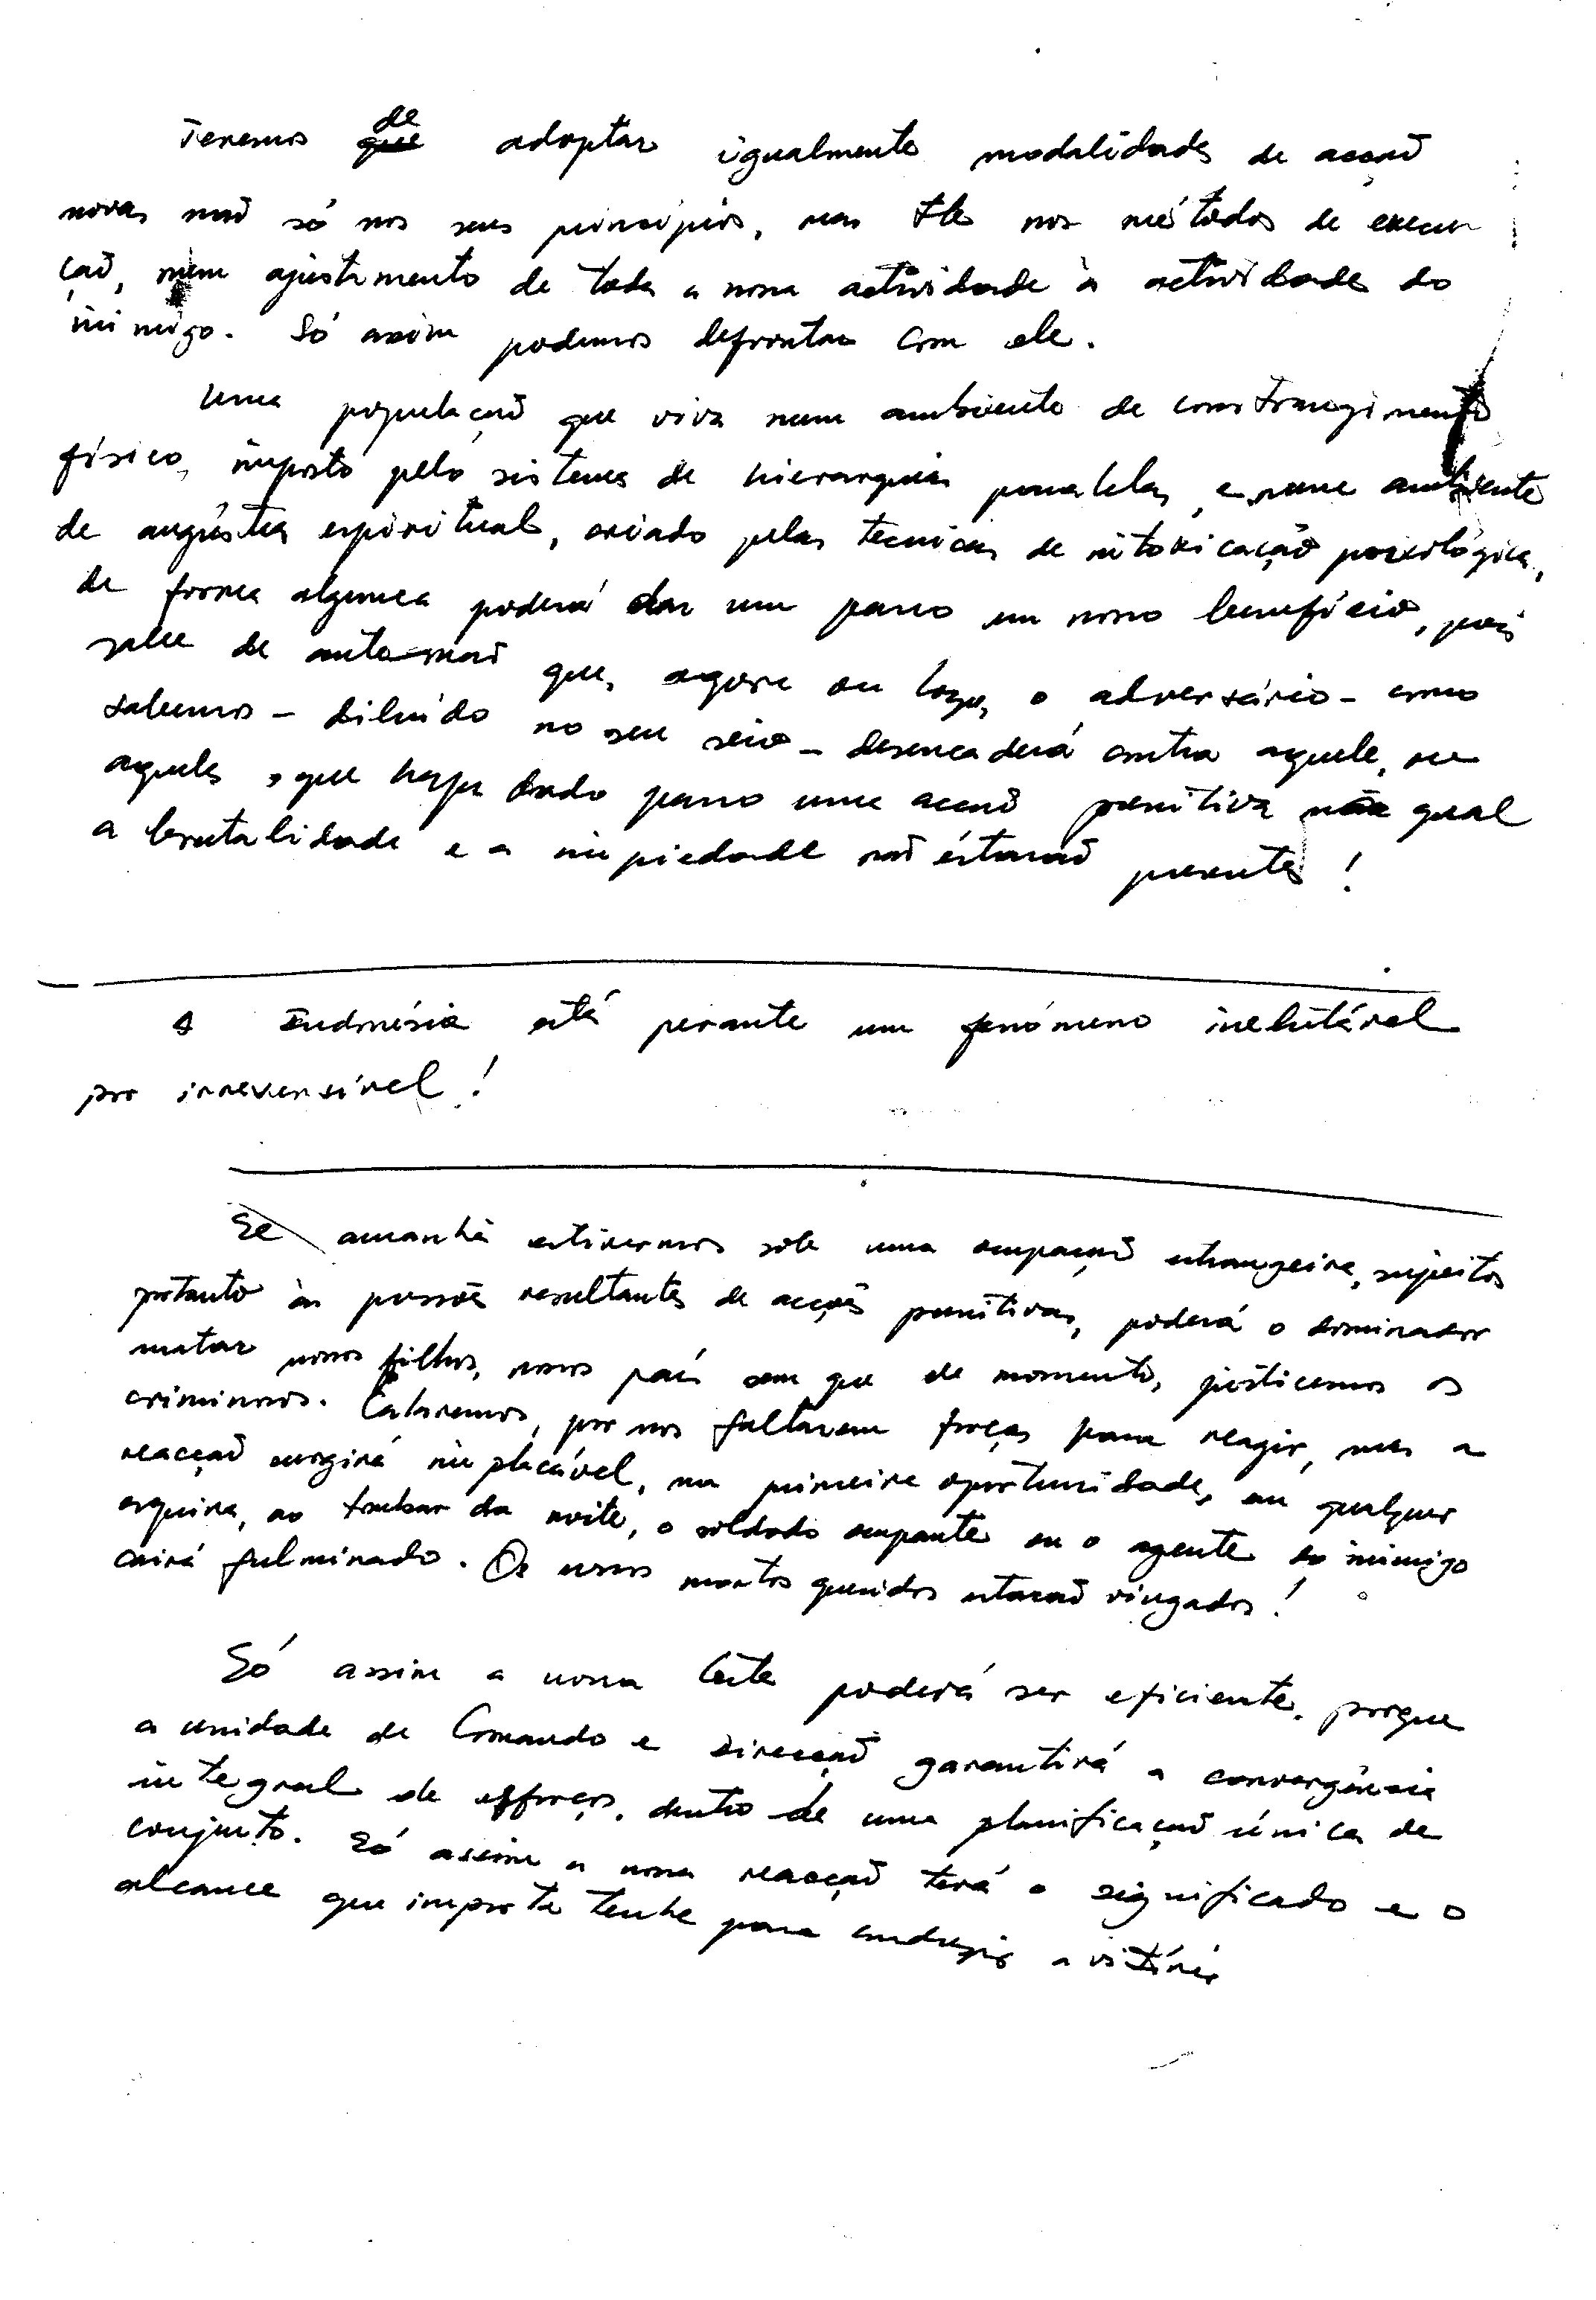 Teremos de adoptar igualmente modalidades de acção
novas não só nos seus princípios, mas tb nos métodos de execu
ção, num ajustamento de toda a nossa actividade à actividade do
inimigo. Só assim podemos defrontar com ele.
Uma população que viva num ambiente de constrangimento
físico, imposto pelo sistema de hierarquias paralelas, e num ambiente
de angústia espiritual, criado pelas técnicas de intoxicação psicológica,
de forma alguma poderá dar um passo em nosso benefício, pois
sabe de antemão que, agora ou logo, o adversário - como
sabemos - diluído no seu seio - desencaderá contra aquele, ou
aqueles, que haja dado passo uma acção punitiva na qual
a brutalidade e a impiedade não estarão presentes!
A Indonésia está perante um fenómeno inelutável
por irreversível!
Se amanhã estivermos sob uma ocupação estrangeira, sujeitos
portanto às pressões resultantes de acções punitivas, poderá o dominador
matar nossos filhos, nossos pais sem que de momento, justicemos os
criminosos. Calaremos, por nos faltarem forças para reagir, mas a
reacção surgirá implacável, na primeira oportunidade, em qualquer
esquina, ao tombar da noite, o soldado ocupante ou o agente do inimigo
cairá fulminado. Os nossos mortos queridos estarão vingados!
Só assim a nossa luta poderá ser eficiente, porque
a unidade de Comando e direcção garantirá a convergência
integral de esforços, dentro de uma planificação única de
conjunto. Só assim a nossa reacção terá o significado e o
alcance que importa tenha para conduzir a vitória